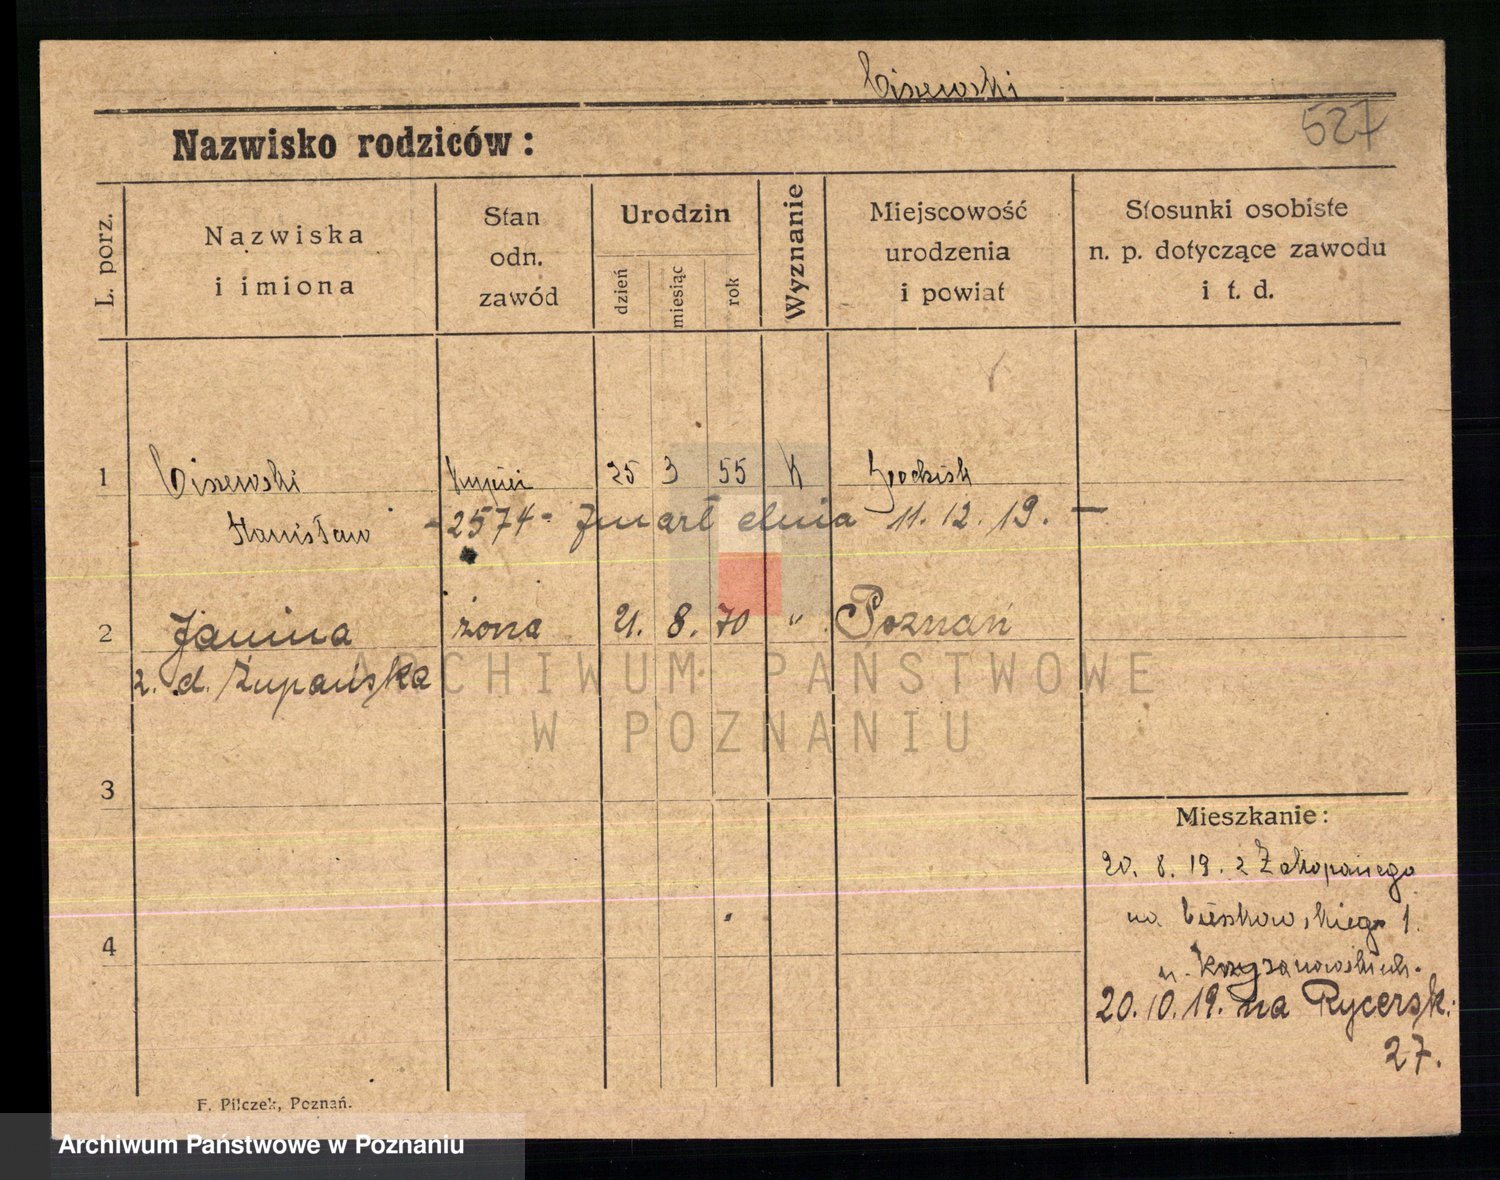 Ciszewski
527
Nazwisko rodziców:
L. porz.
Nazwiska
i imiona
Stan
odn.
zawód
Urodzin
dzień
miesiąc
rok
Wyznanie
Miejscowość
urodzenia
i powiat
Stosunki osobiste
n. p. dotyczące zawodu
i t. d.
1 Ciszewski Kupiec 25 3 55 K
Stanisław - 2574 - Zmarł dnia 11. 12. 19. —
2 Janina żona 21. 8. 70 " Poznań
z. d. Żupańska
ARCHIWUM PAŃSTWOWE
W POZNANIU
3
Mieszkanie:
20. 8. 19. z Zakopanego
na Cieszkowskiego 1.
u. Krzyżanowskich.
20. 10. 19. na Rycersk.
27.
4
F. Pilczek, Poznań.
Archiwum Państwowe w Poznaniu